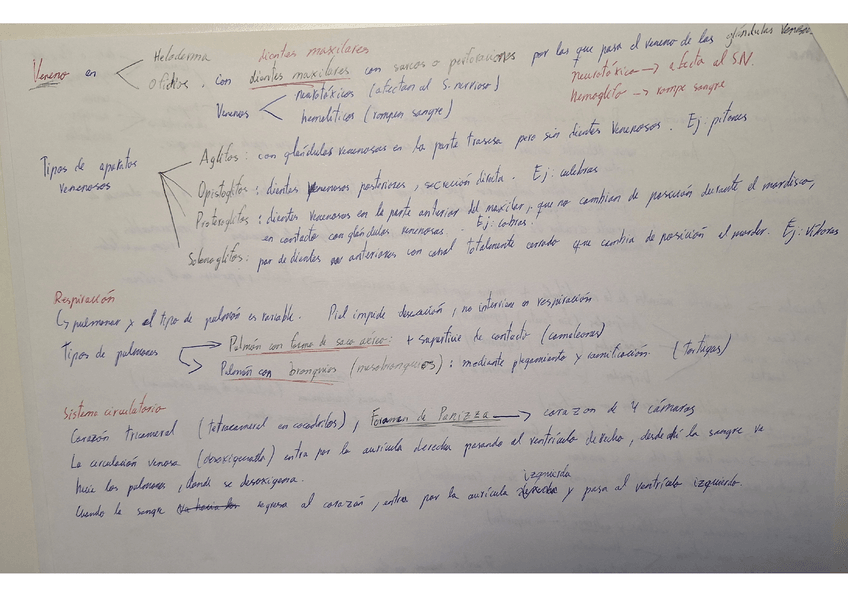 Veneno en
Heloderma
Ofidios. Con dientes maxilares con surcos o perforaciones por las que pasa el veneno de las glándulas venenosas.
dientes maxilares
Venenos
neurotóxicos (afectan al S. nervioso)
hemolíticos (rompen sangre)
neurotóxico → afecta al SN.
→ rompe sangre
Tipos de aparatos venenosos
Aglifos: con glándulas venenosas en la parte trasera pero sin dientes venenosos. Ej: pitones
Opistoglifos: dientes venenosos posteriores, secreción directa. Ej. culebras
Proteroglifos: dientes venenosos en la parte anterior del maxilar, que no cambian de posición durante el mordisco,
en contacto con glándulas venenosas. Ej: cobras.
Solenoglifos: par de dientes anteriores con canal totalmente cerrado que cambia de posición al morder. Ej: víboras
Respiración
↳ pulmonar y el tipo de pulmón es variable. Piel impide desecación, no intercambio en respiración
Tipos de pulmones
Pulmón con forma de saco único: + superficie de contacto (camaleones)
Pulmón con bronquios (mesobronquios): mediante plegamiento y ramificación. (tortugas)
Sistema circulatorio
Corazón tricameral (tetracameral en cocodrilos), Foramen de Panizza → corazon de 4 cámaras
La circulación venosa (desoxigenada) entra por la aurícula derecha pasando al ventrículo derecho, desde ahí la sangre va
hacia los pulmones, donde se desoxigena.
izquierda
Cuando la sangre regresa al corazón, entra por la aurícula y pasa al ventrículo izquierdo.